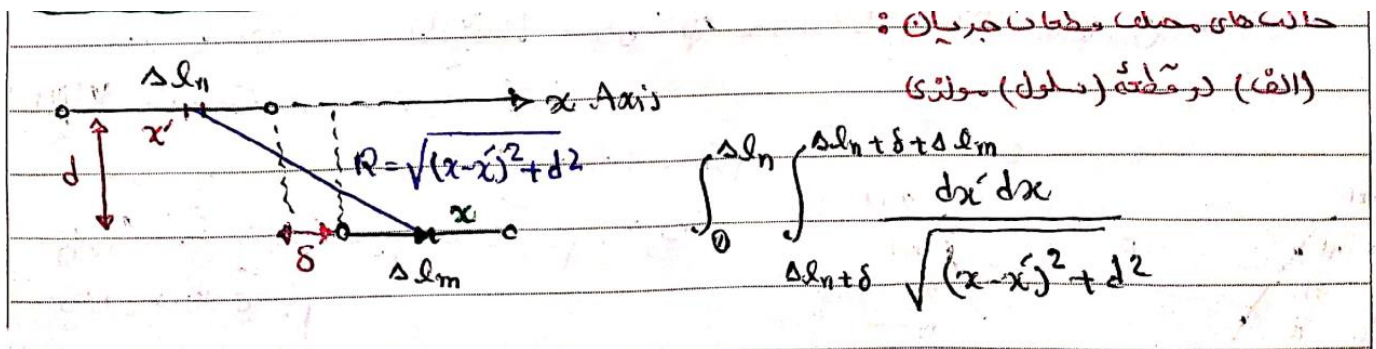 حالت‌های مختلف قطعات جریان :
(الف) دو قطعهٔ (سلول) موازی
Δlₙ
x Axis
x′
d
R = √((x-x′)² + d²)
x
δ
Δlₘ
∫₀^Δlₙ ∫_{Δlₙ+δ}^{Δlₙ+δ+Δlₘ} dx′ dx / √((x-x′)² + d²)